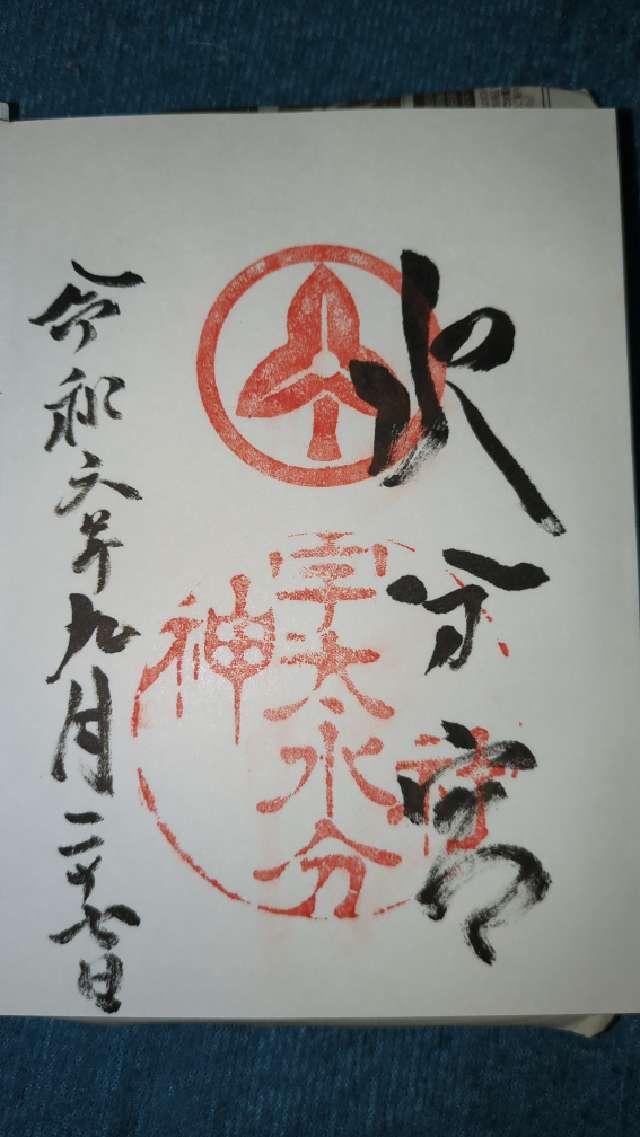 水分宮
宇太水分
神社
令和六年九月二十七日